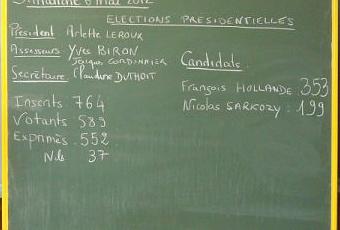 Dimanche 6 mai 2012
ELECTIONS PRESIDENTIELLES
Président Arlette LEROUX
Assesseurs Yves BIRON
Jacques CORDONNIER
Secrétaire Claudine DUTHOIT
Candidats
François HOLLANDE : 353
Nicolas SARKOZY : 199
Inscrits 764
Votants 589
Exprimés 552
Nuls 37